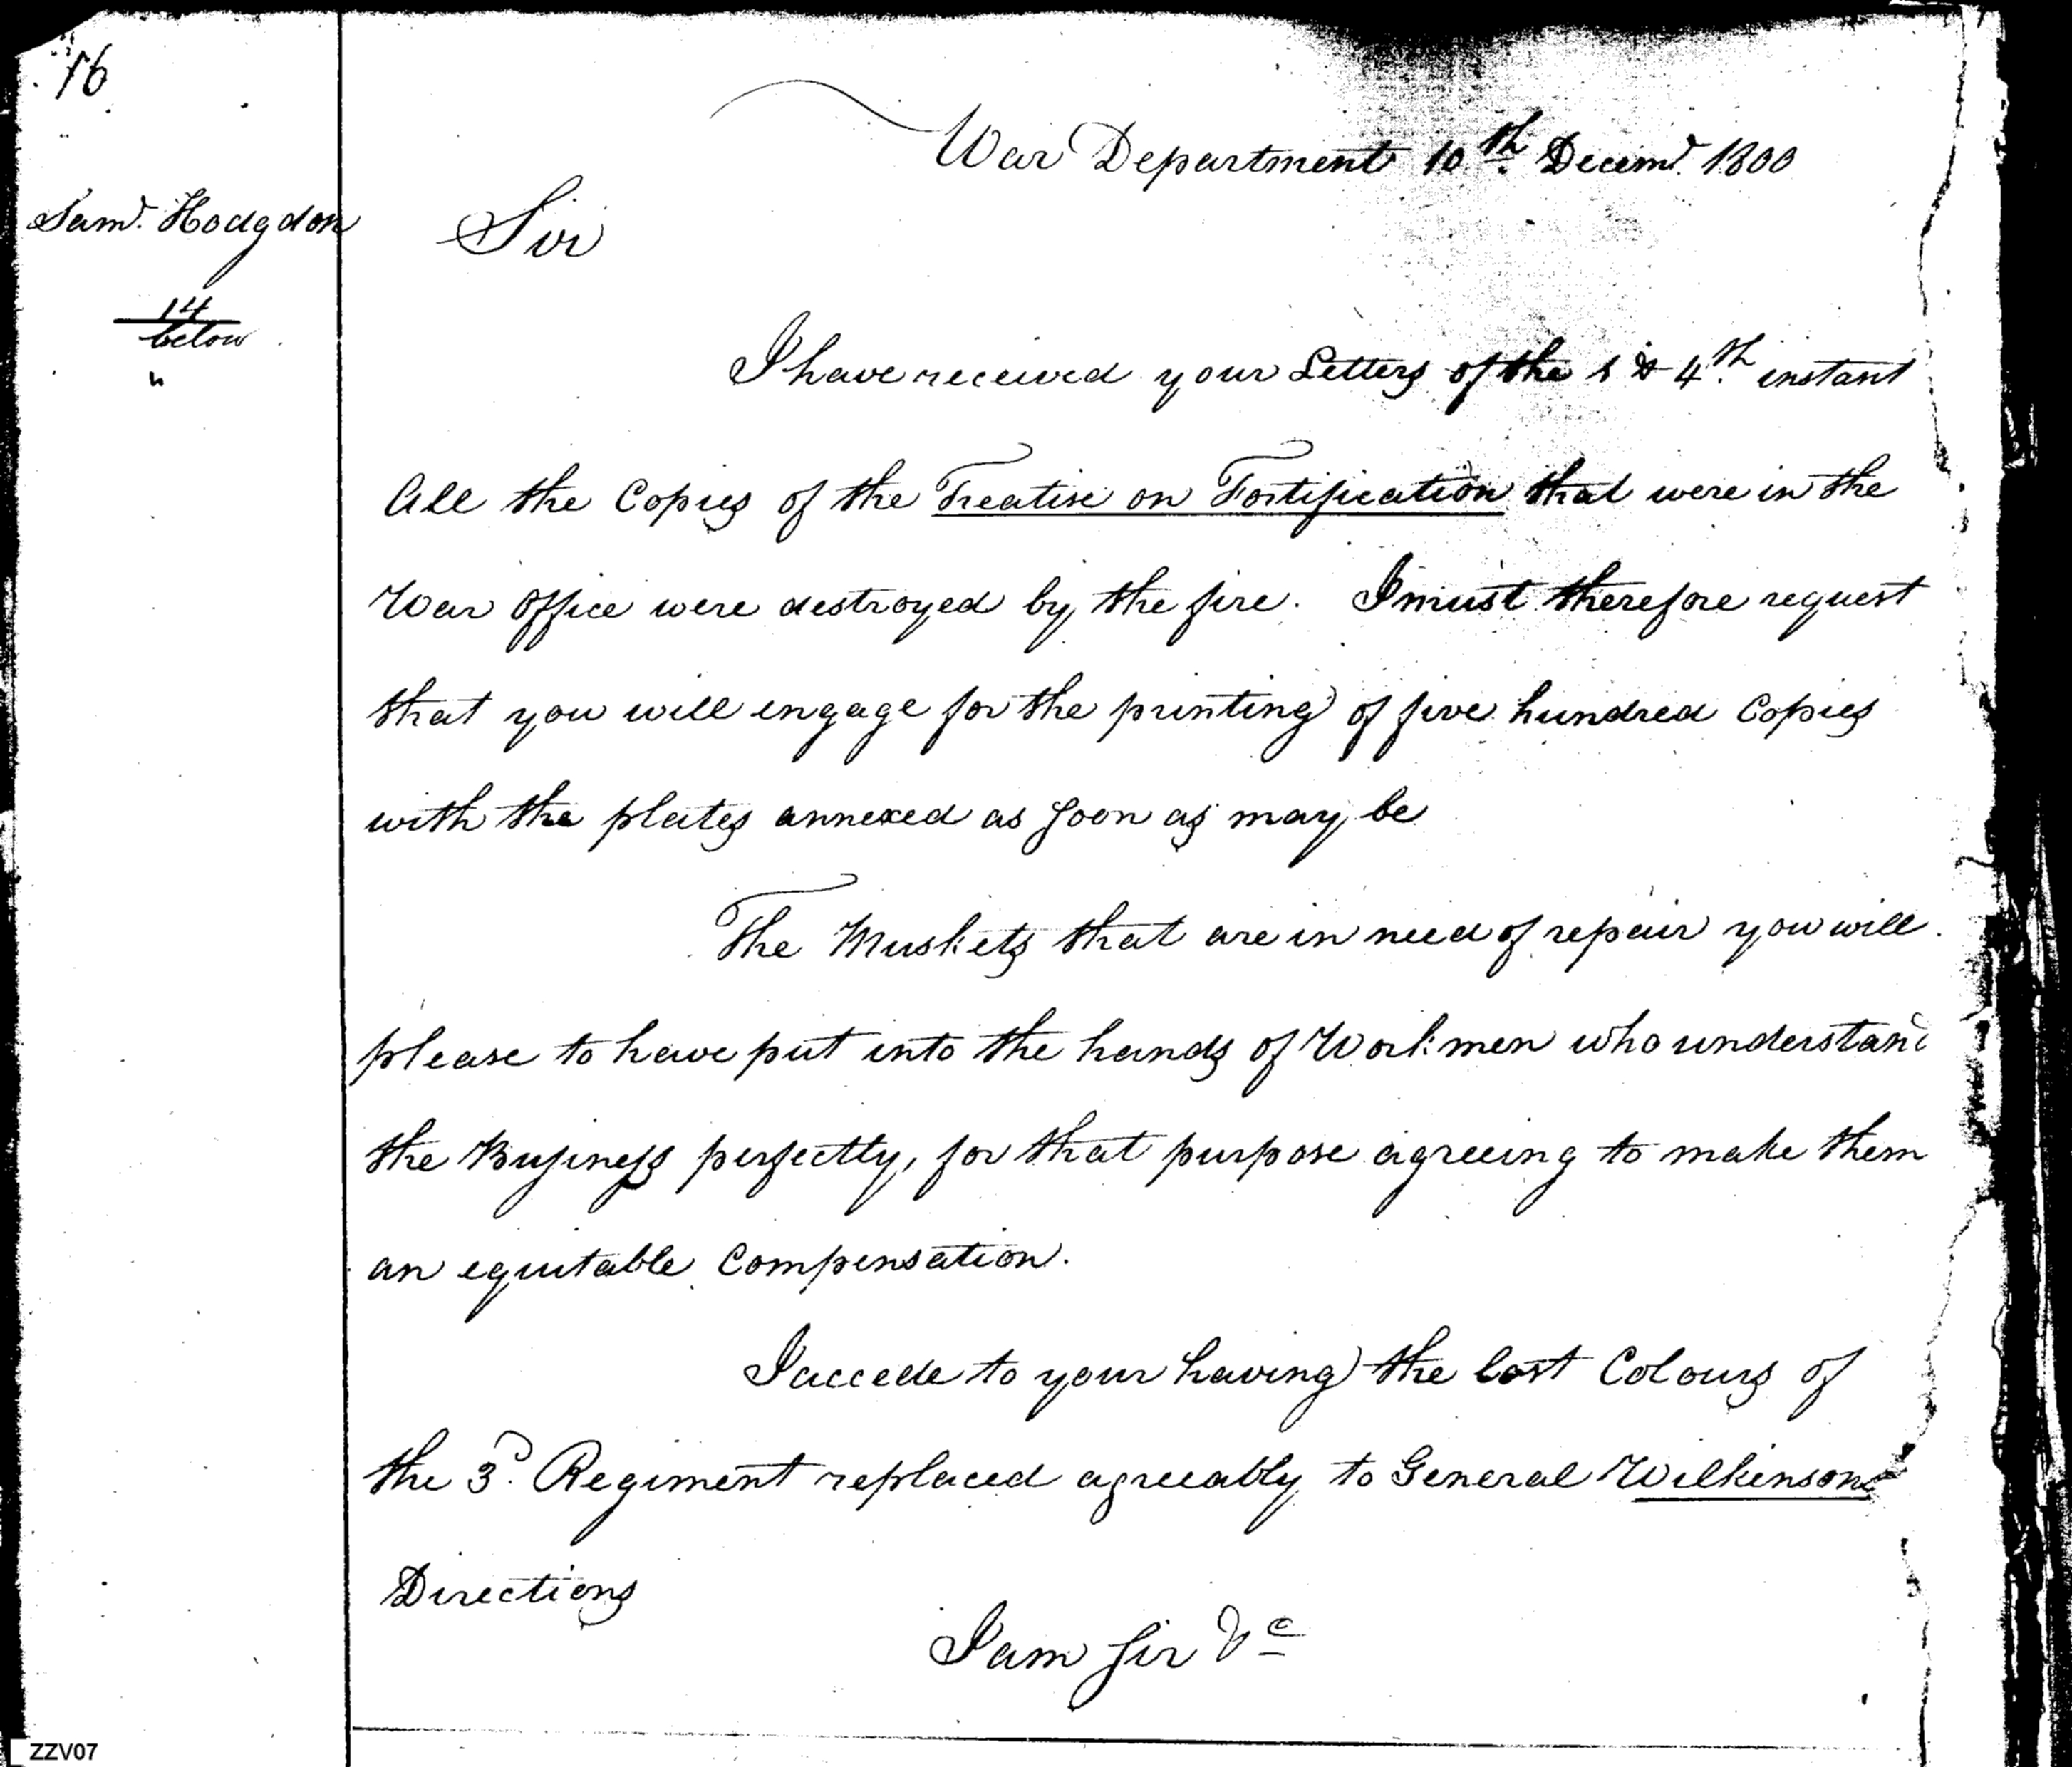 16
War Department 10th Decemr. 1800
Saml. Hodgdon
Sir
14
below
"
I have received your Letters of the 1 & 4th. instant
All the Copies of the Treatise on Fortification that were in the
War Office were destroyed by the fire. I must therefore request
that you will engage for the printing of five hundred Copies
with the plates annexed as soon as may be
The Muskets that are in need of repair you will
please to have put into the hands of Workmen who understand
the Business perfectly, for that purpose agreeing to make them
an equitable Compensation.
I accede to your having the lost Colours of
the 3d. Regiment replaced agreeably to General Wilkinsons
Directions
I am Sir &c
ZZV07